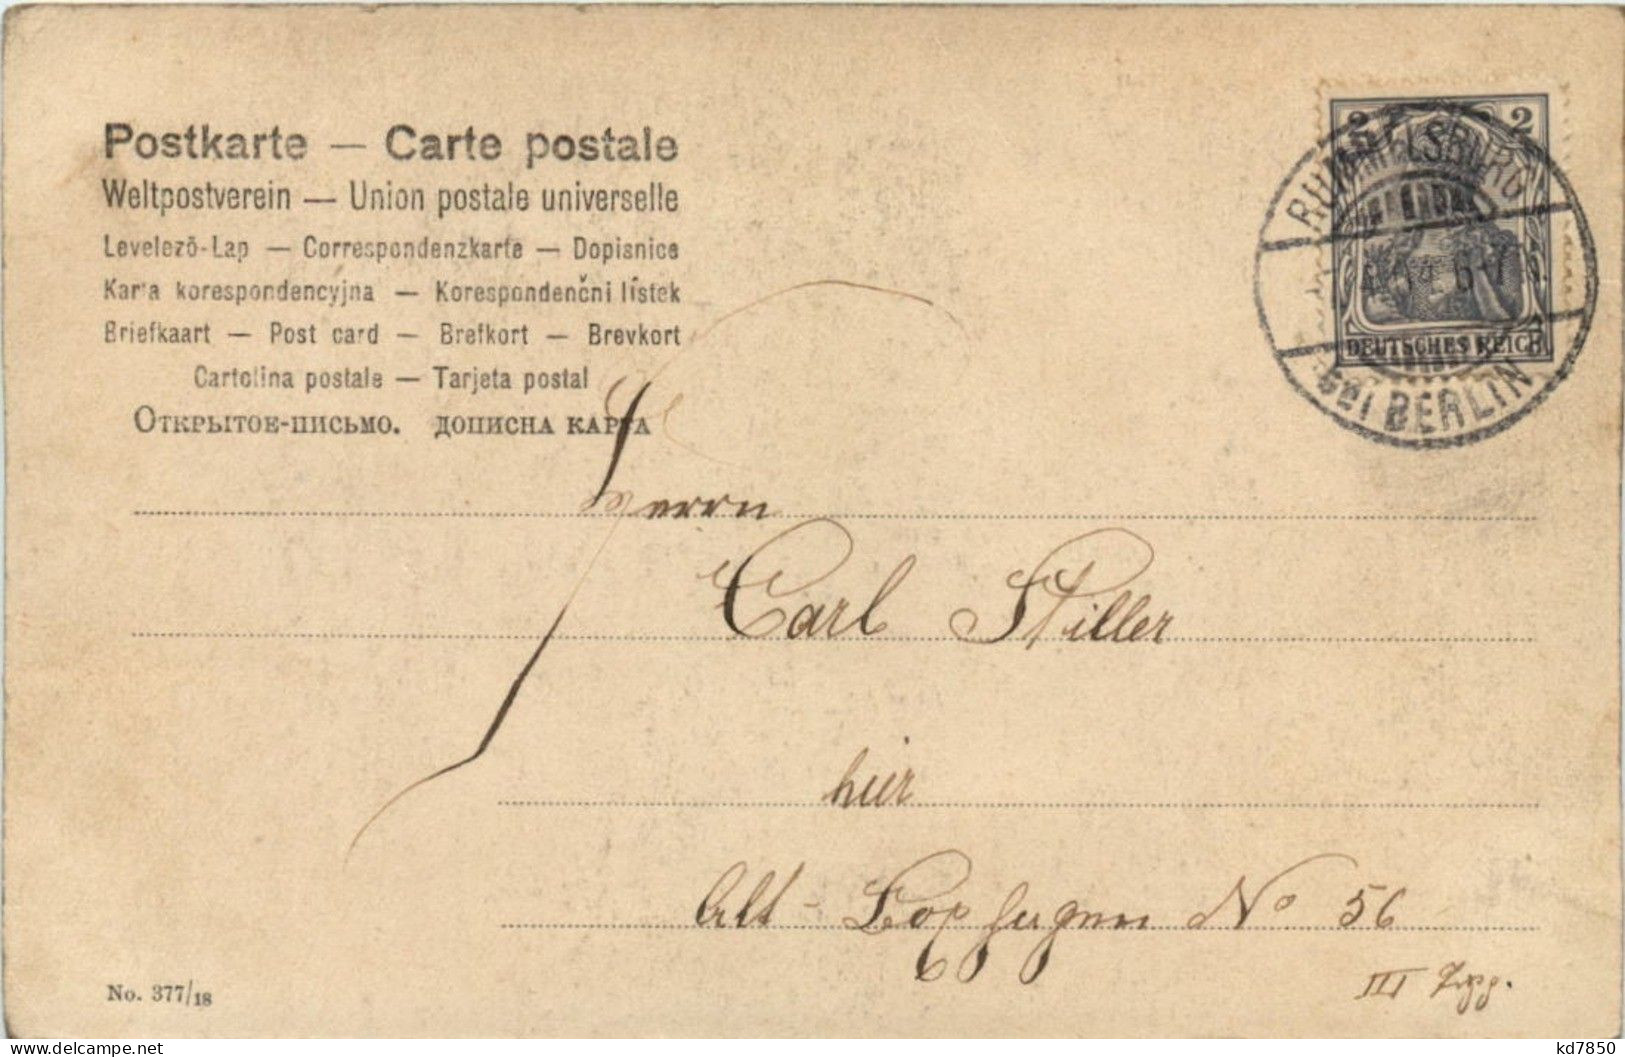 Postkarte — Carte postale
Weltpostverein — Union postale universelle
Levelezö-Lap — Correspondenzkarte — Dopisnice
Karta korespondencyjna — Korespondenčni lístek
Briefkaart — Post card — Brefkort — Brevkort
Cartolina postale — Tarjeta postal
Открытое-письмо. дописна карта
2 2
RUMMELSBURG
6-7 N.
DEUTSCHES REICH
bei BERLIN
Herrn
Carl Stiller
hier
Alt - No 56
III
No. 377/18
delcampe.net
kd7850